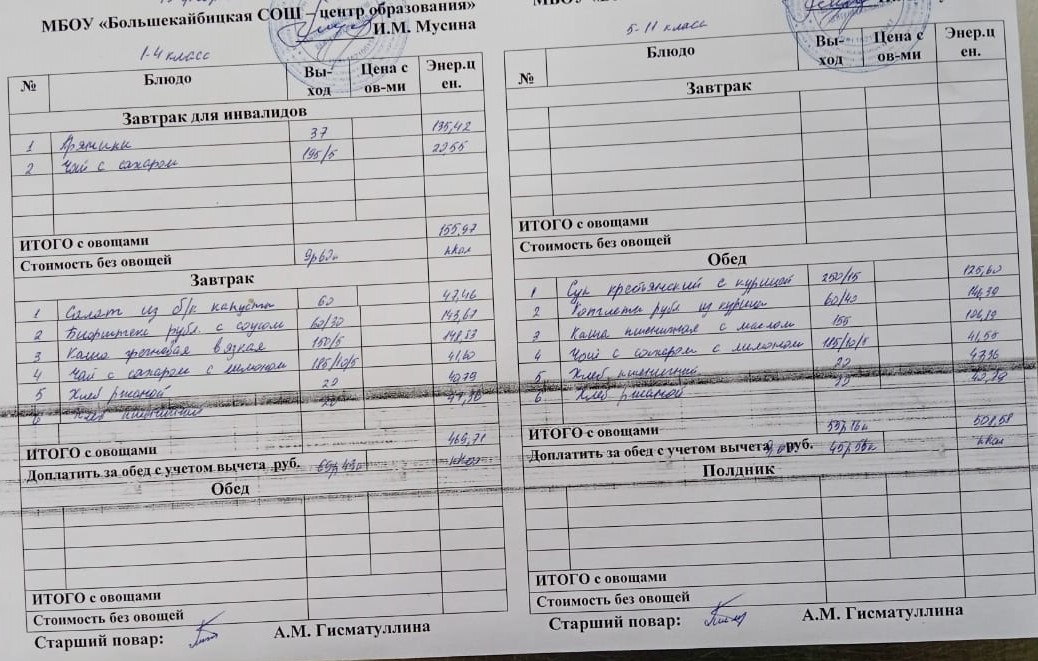 МБОУ «Большекайбицкая СОШ – центр образования»
И.М. Мусина
1-4 класс
№ Блюдо Вы-ход Цена с ов-ми Энер.ц ен.
Завтрак для инвалидов
1 Пряники 37 135,42
2 Чай с сахаром 195/5 20,55
ИТОГО с овощами 155,97
Стоимость без овощей 9р60к ккал
Завтрак
1 Салат из б/к капусты 60 47,46
2 Бифштекс рубл. с соусом 60/30 143,67
3 Каша гречневая вязкая 150/5 148,53
4 Чай с сахаром с лимоном 185/10/5 41,60
5 Хлеб ржаной 20 40,79
6 Хлеб пшеничный 20 47,36
ИТОГО с овощами 469,71
Доплатить за обед с учетом вычета руб. ккал
Обед
ИТОГО с овощами
Стоимость без овощей
Старший повар: А.М. Гисматуллина
5-11 класса
№ Блюдо Вы-ход Цена с ов-ми Энер.ц ен.
Завтрак
ИТОГО с овощами
Стоимость без овощей
Обед
1 Суп крестьянский с курицей 250/15 125,60
2 Котлеты рубл. из курицы 60/40
3 Каша пшеничная с маслом 155
4 Чай с сахаром с лимоном 185/10/5
5 Хлеб пшеничный 20 47,36
6 Хлеб ржаной 20 40,79
ИТОГО с овощами 501,58
Доплатить за обед с учетом вычета руб. ккал
Полдник
ИТОГО с овощами
Стоимость без овощей
Старший повар: А.М. Гисматуллина